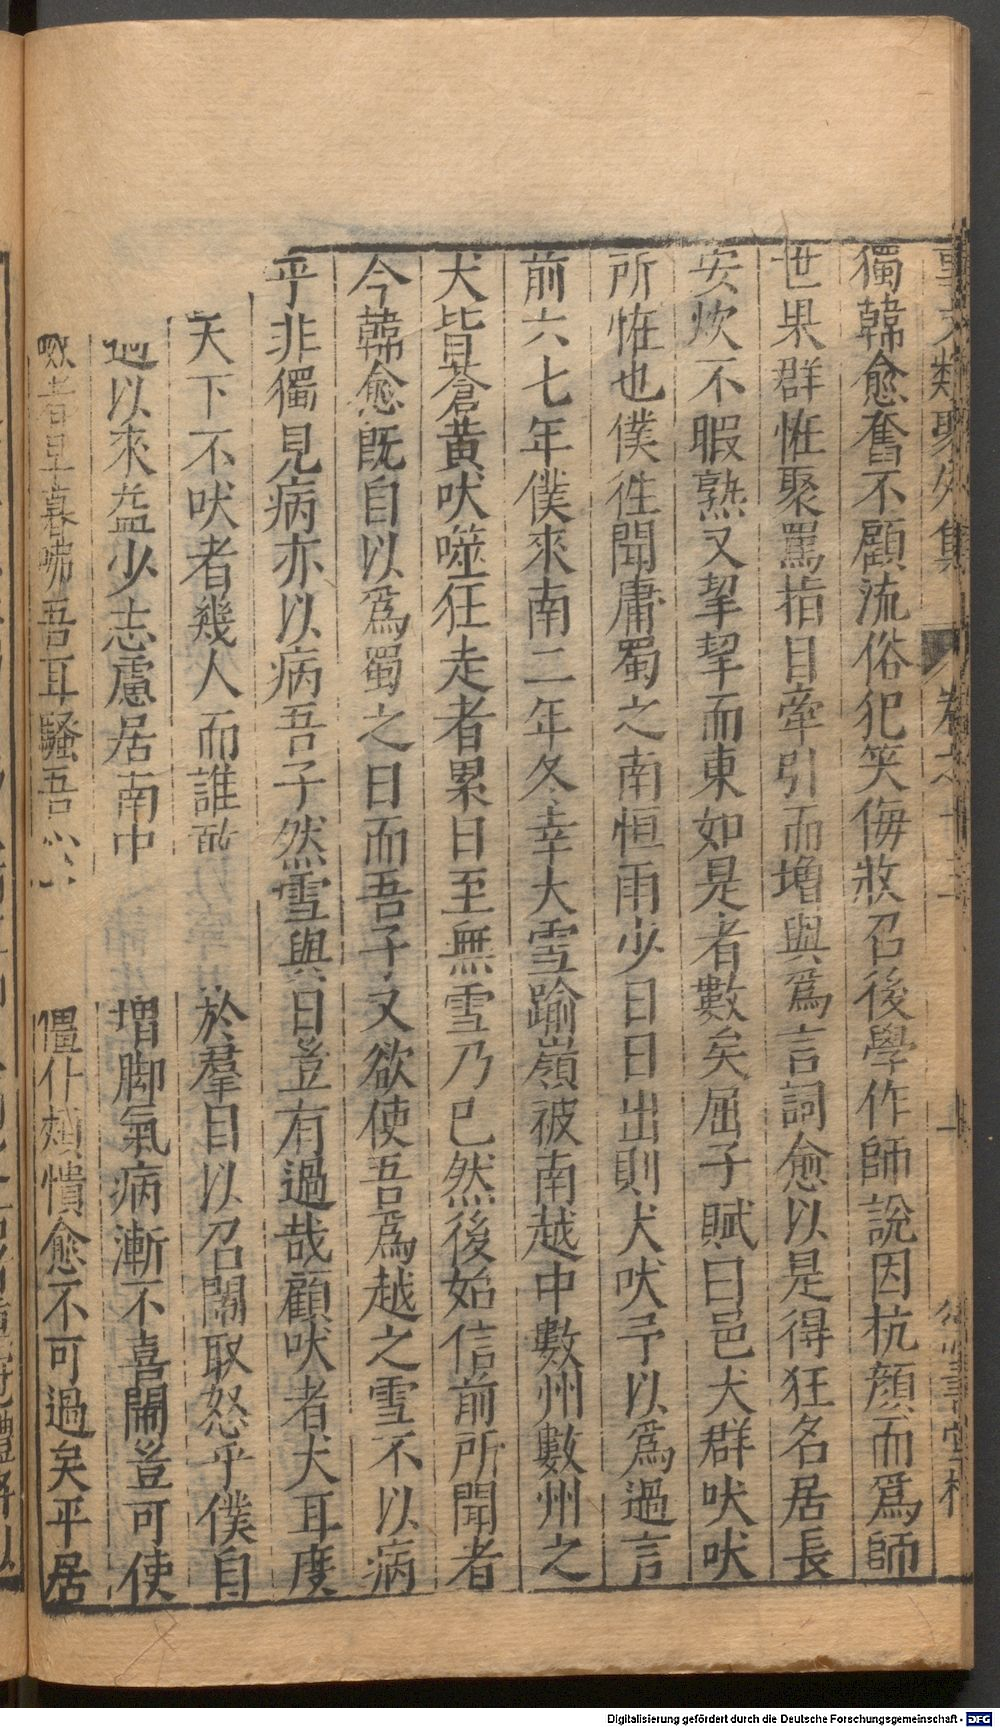 獨韓愈奮不顧流俗犯笑侮收召後學作師說因杭顔而爲師
世果群恠聚罵指目牽引而增與爲言詞愈以是得狂名居長
安炊不暇熟又挈挈而東如是者數矣屈子賦曰邑犬群吠吠
所恠也僕徃聞庸蜀之南恒雨少日日出則犬吠予以爲過言
前六七年僕來南二年冬幸大雪踰嶺被南越中數州數州之
犬皆蒼黄吠噬狂走者累日至無雪乃已然後始信前所聞者
今韓愈既自以爲蜀之日而吾子又欲使吾爲越之雪不以病
乎非獨見病亦以病吾子然雪與日豈有過哉顧吠者犬耳度
天下不吠者幾人而誰 於羣目以召閙取怒乎僕自
過以來益少志慮居南中 增脚氣病漸不喜閙豈可使
者早暮咈吾耳騷吾心 僵仆煩憒愈不可過矣平居
Digitalisierung gefördert durch die Deutsche Forschungsgemeinschaft - DFG